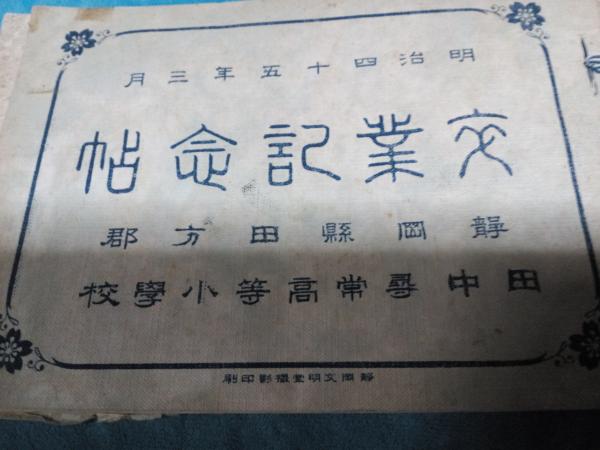 明治四十五年三月
卒業記念帖
靜岡縣田方郡
田中尋常高等小學校
靜岡文明堂撮影印刷